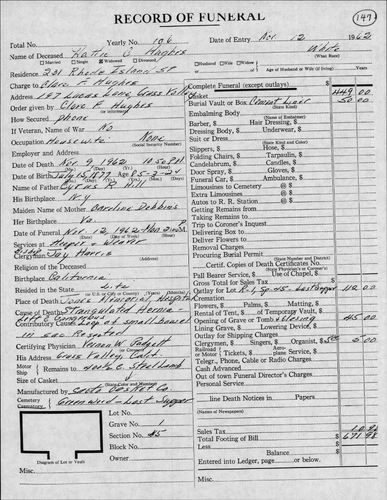 RECORD OF FUNERAL
147
Total No. Yearly No. 106 Date of Entry Nov. 12 1962
Name of Deceased Hattie C Hughes White
(What Race)
Married Single Widowed Divorced Husband Wife Widow
of Age of Husband or Wife (if living) Years
Residence 231 Rhode Island St
Charge to Clare F Hughes
Address 157 Lucas Lane, Grass Valley
Order given by Clare F Hughes
How Secured phone
If Veteran, Name of War no
Occupation Housewife None
(Social Security Number)
Employer and Address
Date of Death Nov. 9, 1962 10:50 PM
Date of Birth July 15, 1877 Age 85-3-24
Name of Father Cyrus R Hill
His Birthplace N.Y
Maiden Name of Mother Caroline Dobbins
Her Birthplace Va.
Date of Funeral Nov. 12, 1962 Hour 2:00 P.M.
Services at Hooper & Weaver
Clergyman Jay Harris
Religion of the Deceased
Birthplace California
Resided in the State Life
(U.S. or City or County) (Years) (Months)
Place of Death Jones Memorial Hospital
Cause of Death Strangulated Hernia-
Contributory Cause Loop of small bowel
in sac
Certifying Physician Vernon W. Padgett
His Address Grass Valley, Calif.
Motor
Ship Remains to
Size of Casket
(State Color and Number)
Manufactured by Santa Casket Co
Cemetery
Crematory Greenwood - Last Supper
Lot No.
Grave No. 1
Section No. 45
Block No.
Owner
Diagram of Lot or Vault
Misc.
Complete Funeral (except outlays) $ 449 00
Casket
Burial Vault or Box Cement Liner 50 00
(State Kind)
Embalming Body
(Name of Embalmer)
Barber, $ Hair Dressing, $
Dressing Body, $ Underwear, $
Suit or Dress
(State Kind and Color)
Slippers, $ Hose, $
Folding Chairs, $ Tarpaulin, $
Candelabrum, $ Candles, $
Door Spray, $ Gloves, $
Funeral Car, $ Ambulance, $
Limousines to Cemetery @ $
Extra Limousines @ $
Autos to R. R. Station @ $
Getting Remains from
Taking Remains to
Trip to Coroner's Inquest
Delivering Box to
Deliver Flowers to
Removal Charges
Procuring Burial Permit
(State Number and District)
Certif. Copies of Death Certificates No.
(State Physician's or Coroner's)
Pall Bearer Service, $ Use of Chapel, $
Gross Total for Sales Tax $
Outlay for Lot 1 Sp. 45 - Last Supper 112 00
Cremation
Flowers, $ Palms, $ Matting, $
Rental of Tent, $ of Temporary Vault, $
Opening of Grave or Tomb 45 00
Lining Grave, $ Lowering Device, $
Outlay for Shipping Charges
Clergymen, $ Singers, $ Organist, $ 5.00 5 00
Railroad or Motor Tickets, $ Aeroplane Service, $
Telegr., Phone, Cable or Radio Charges
Cash Advanced
Out of town Funeral Director's Charges
Personal Service
line Death Notices in Papers
(Names of Newspapers)
Sales Tax
Total Footing of Bill $ 671 98
Less $
Balance $
Entered into Ledger, page or below.
Misc.